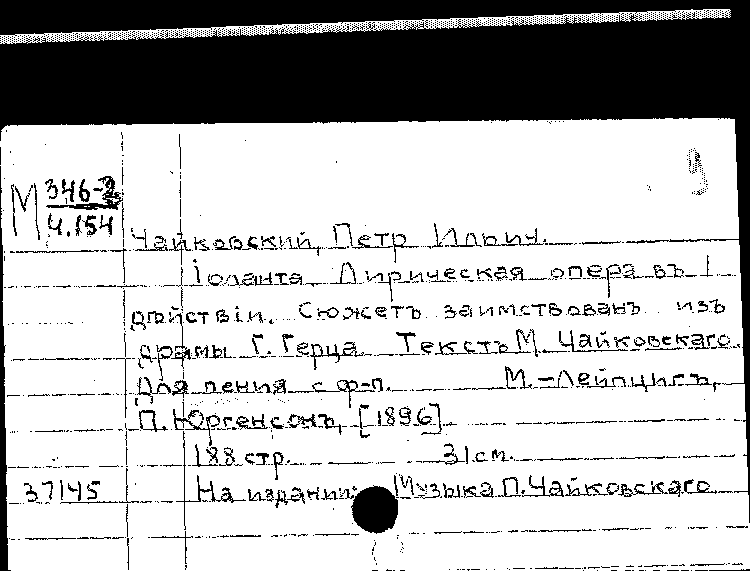 9
М 346-2
Ч.154
Чайковский, Петр Ильич.
Iоланта. Лирическая опера въ 1
дѣйствiи. Сюжетъ заимствованъ изъ
драмы Г. Герца. Текстъ М. Чайковскаго.
Для пения с ф-п. М.-Лейпцигъ,
П. Юргенсонъ, [1896].
188 стр. 31 см.
37145 На издании: Музыка П. Чайковскаго